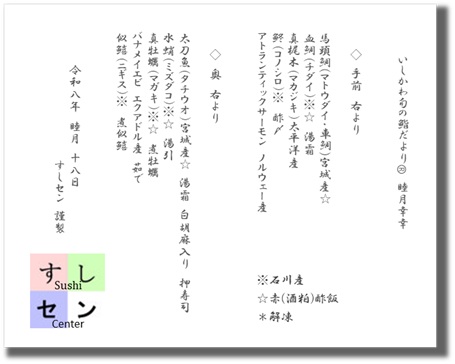 いしかわ旬の鮨だより㊴ 睦月幸幸
◇ 手前 右より
馬頭鯛(マトウダイ・車鯛)宮城産☆
血鯛(チダイ)※☆ 湯霜
真梶木(マカジキ)太平洋産
鮗(コノシロ)※ 酢〆
アトランティックサーモン ノルウェー産
※石川産
☆赤(酒粕)酢飯
＊解凍
◇ 奥 右より
太刀魚(タチウオ)宮城産☆ 湯霜 白胡麻入り 押寿司
水蛸(ミズダコ)※☆ 湯引
真牡蠣(マガキ)※☆ 煮牡蠣
バナメイエビ エクアドル産 茹で
似鱚(ニギス)※ 煮似鱚
令和八年 睦月 十八日
すしセン 謹製
すし
Sushi
セン
Center